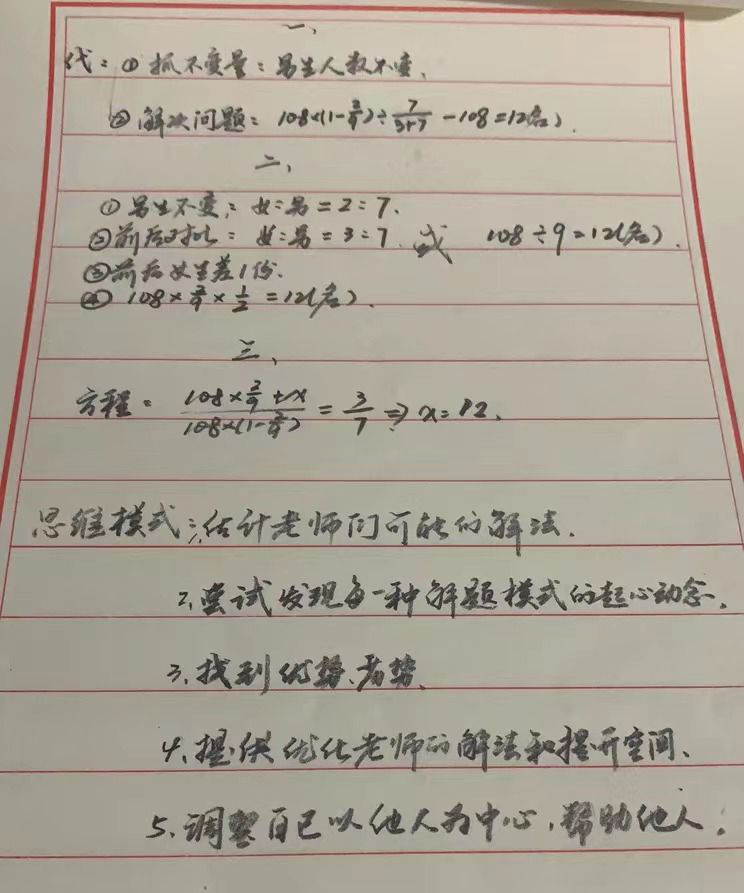 一、
代：① 抓不变量：男生人数不变、
② 解决问题： 108×(1-2/9)÷7/(3+7) -108=12(名)．
二、
① 男生不变，：女：男 = 2：7．
②前后对比： 女：男 = 3：7．或 108÷9=12(名)．
③前后女生差1份．
④ 108×2/9×1/2=12(名)．
三、
方程： (108×2/9+x)/(108×(1-2/9)) = 3/7 ⇒ x=12．
思维模式：1、估计老师们可能的解法．
2、尝试发现每一种解题模式的起心动念．
3、找到优势、劣势、
4、提供优化老师的解法和提升空间、
5、调整自己以他人为中心，帮助他人．